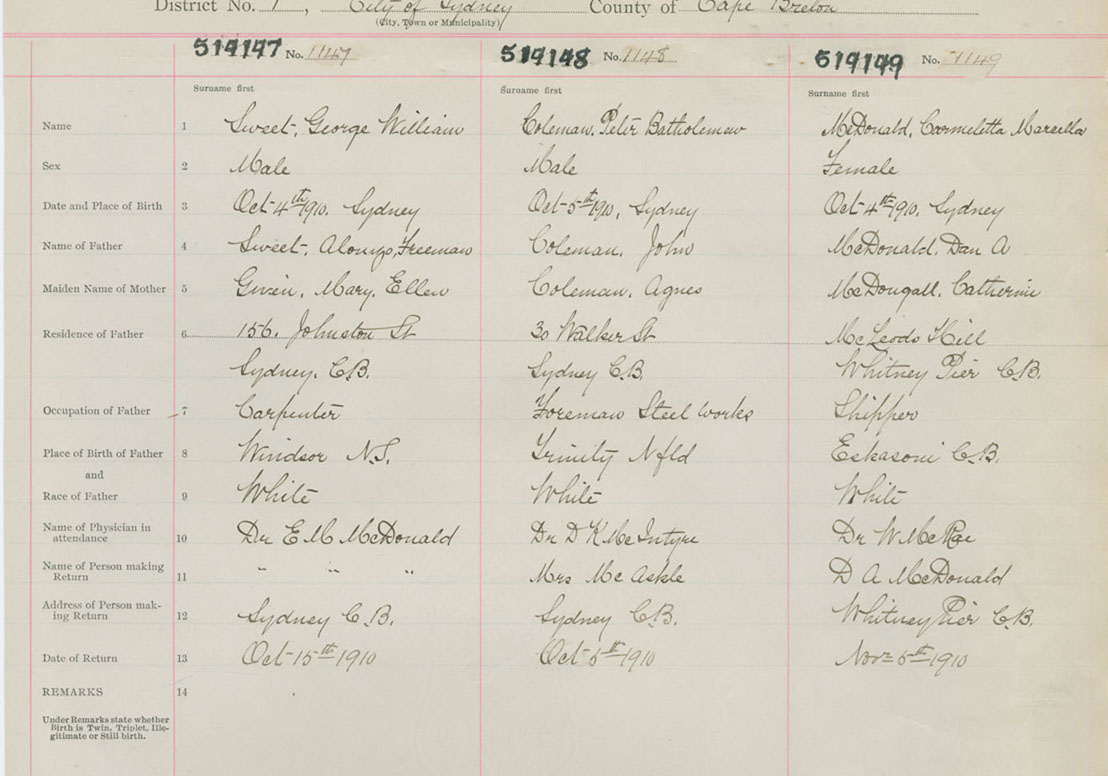 District No. 1, City of Sydney County of Cape Breton
(City, Town or Municipality)
514147 No. 1147 514148 No. 1148 514149 No. 1149
Surname first Surname first Surname first
Name 1 Sweet, George William Coleman, Peter Batholemew McDonald, Carmeletta Marcella
Sex 2 Male Male Female
Date and Place of Birth 3 Oct 4th 1910. Sydney Oct 5th 1910, Sydney Oct 4th 1910. Sydney
Name of Father 4 Sweet, Alonzo, Freeman Coleman, John McDonald, Dan A
Maiden Name of Mother 5 Mary, Ellen Coleman, Agnes McDougall, Catherine
Residence of Father 6 156. Johnston St 30 Walker St McLeods Hill
Sydney. C.B. Sydney C.B. Whitney Pier C.B.
Occupation of Father 7 Carpenter Foreman Steel works Shipper
Place of Birth of Father 8 Windsor N.S. Trinity Nfld Eskasoni C.B.
and
Race of Father 9 White White White
Name of Physician in
attendance 10 Dr E M McDonald Dr D K McIntyre Dr W McRae
Name of Person making
Return 11 " " " Mrs McAskle D A McDonald
Address of Person mak-
ing Return 12 Sydney C.B. Sydney C.B. Whitney Pier C.B.
Date of Return 13 Oct 15th 1910 Oct 5th 1910 Nov 5th 1910
REMARKS 14
Under Remarks state whether
Birth is Twin, Triplet, Ille-
gitimate or Still birth.